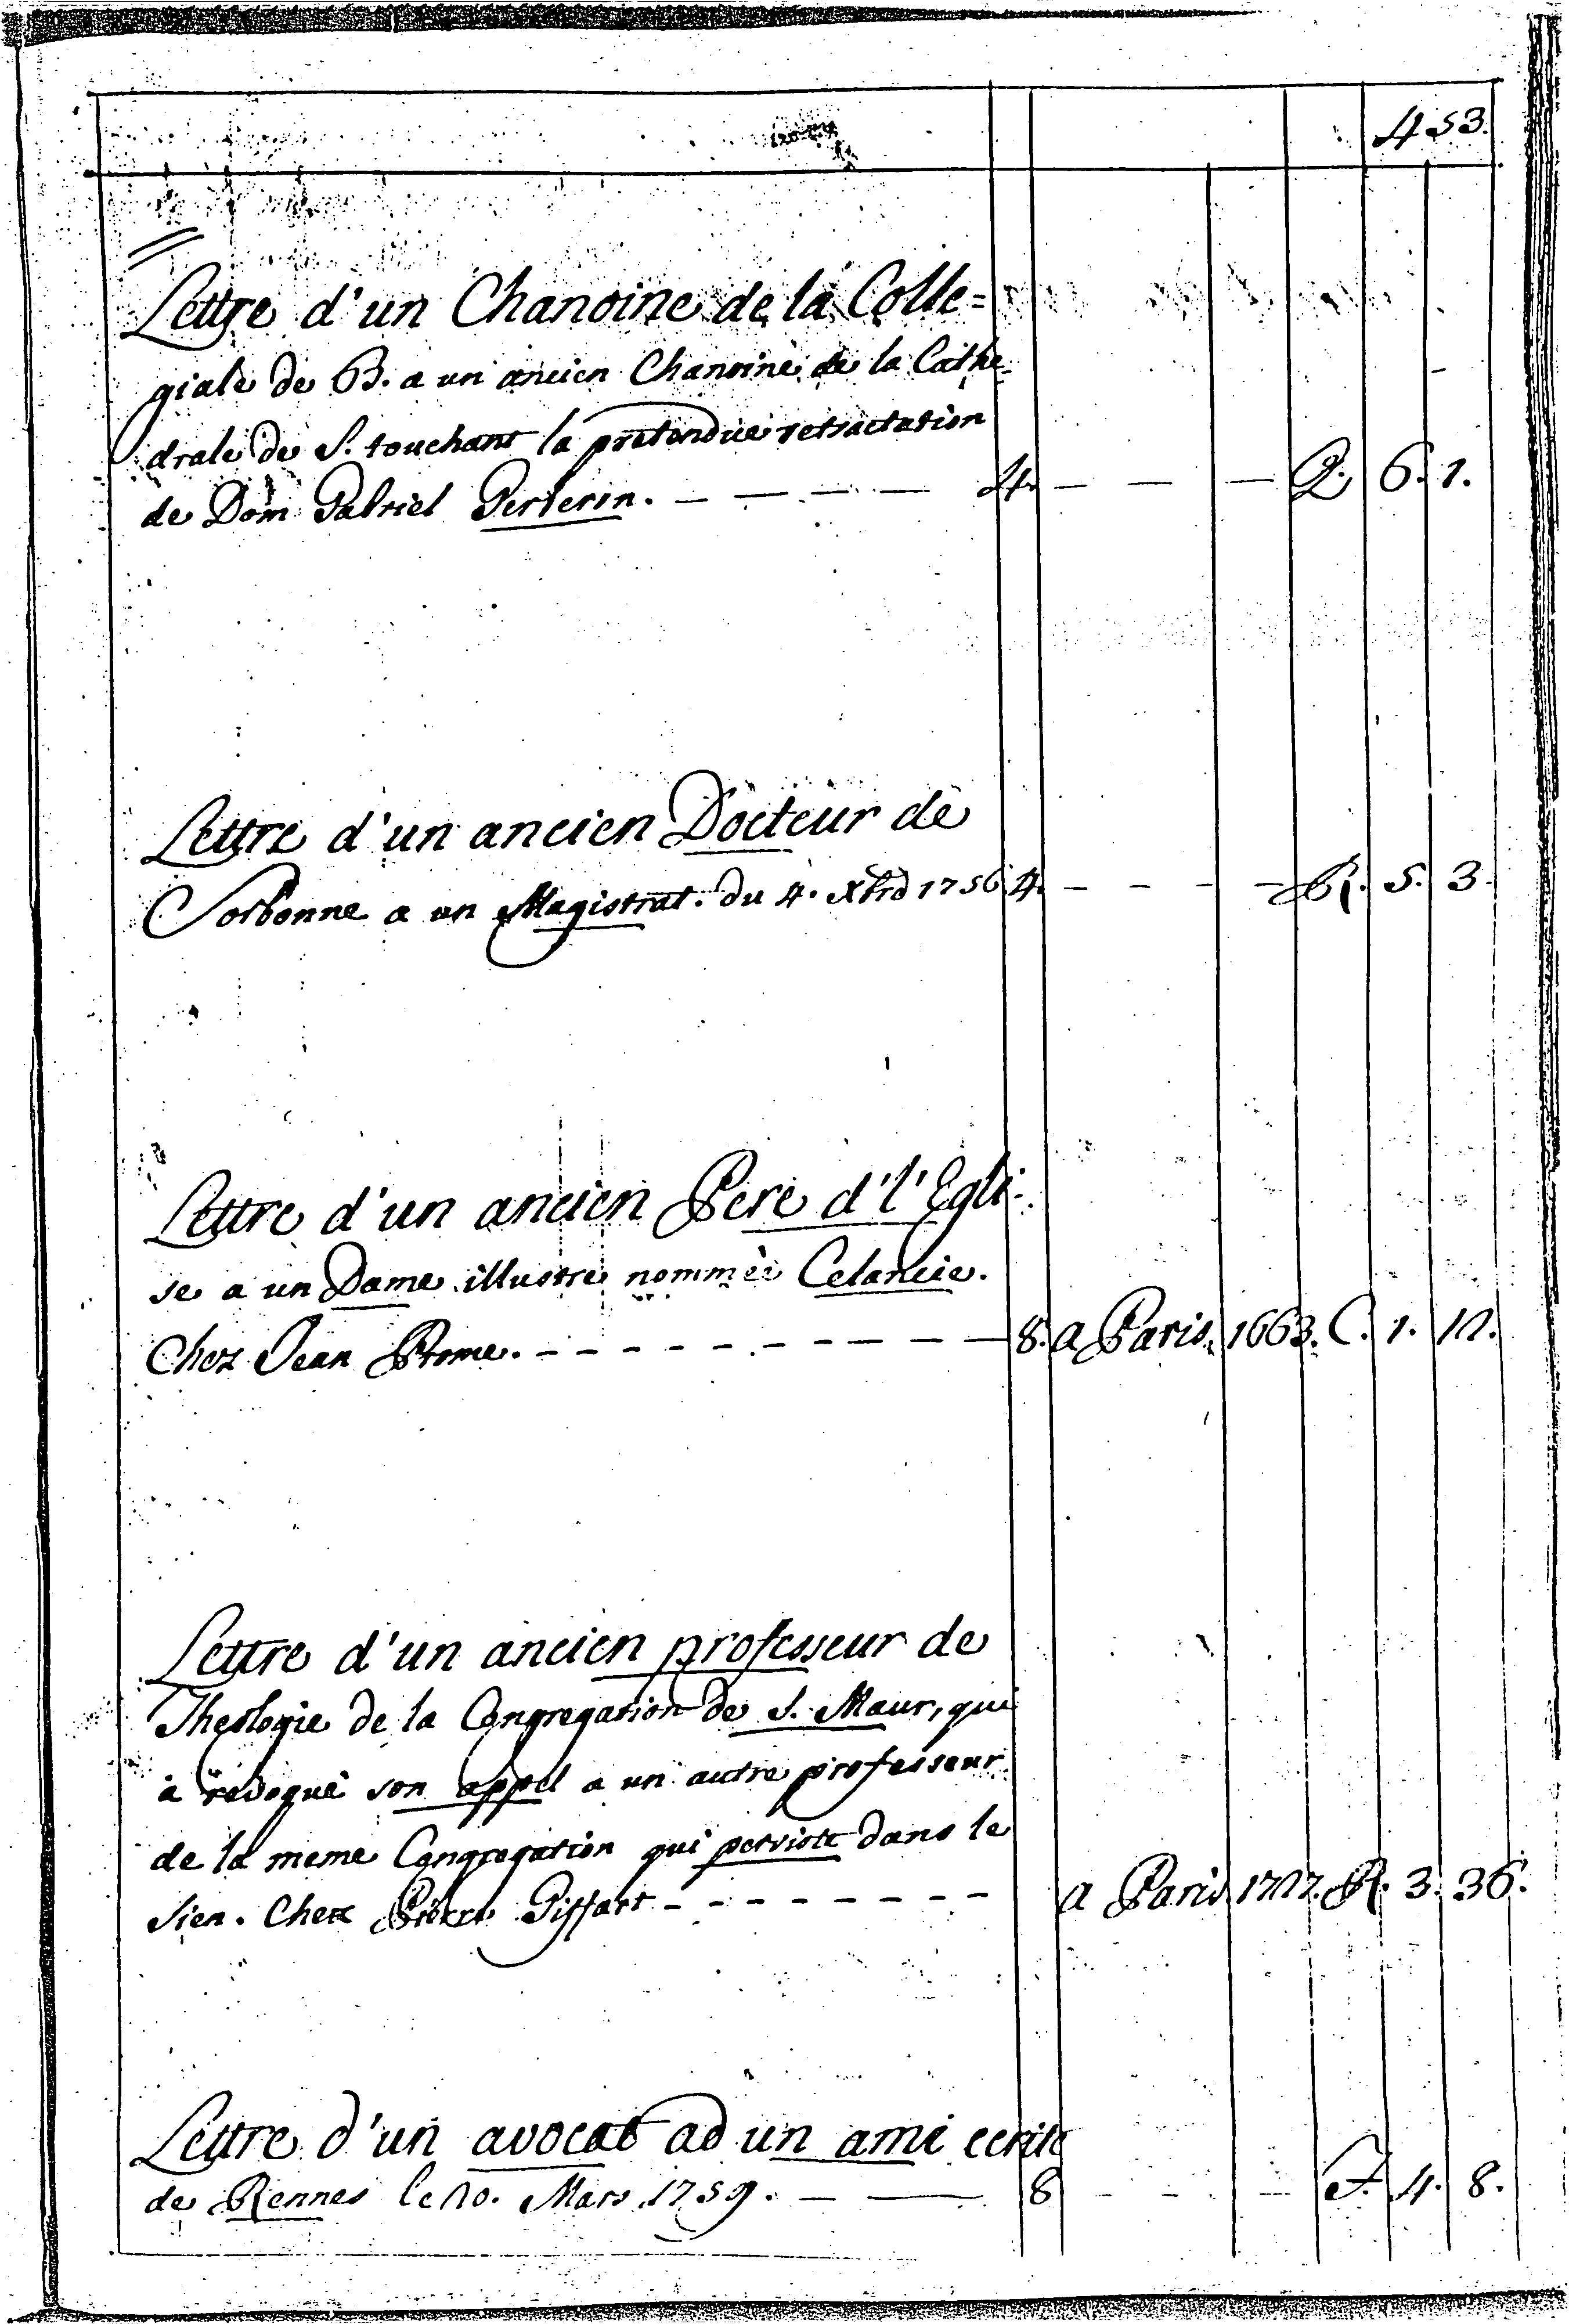 453.
Lettre d'un Chanoine de la Colle=
giale de B. a un ancien Chanoine de la Cathe
drale de S. touchant la pretendue retractation
de Dom Gabriel Perterin. — — — — 4. — — — Q. 6. 1.
Lettre d'un ancien Docteur de
Sorbonne a un Magistrat. du 4. Xbre 1756 4. - - - - R. 5. 3.
Lettre d'un ancien Pere d'l'Egli-
se a un Dame illustre nommée Celancie.
Chez Jean Prome. - - - - - - - - - - 8. a Paris. 1663. C. 1. 12.
Lettre d'un ancien professeur de
Theologie de la Congregation de S. Maur, qui
a revoqué son appel a un autre professeur
de la meme Congregation qui persiste dans le
sien. Chez Giffart - - - - - - - - a Paris 1727. R. 3. 36.
Lettre d'un avocat ad un ami ecrite
de Rennes le 20. Mars 1759. — — 8 - - - - F. 4. 8.